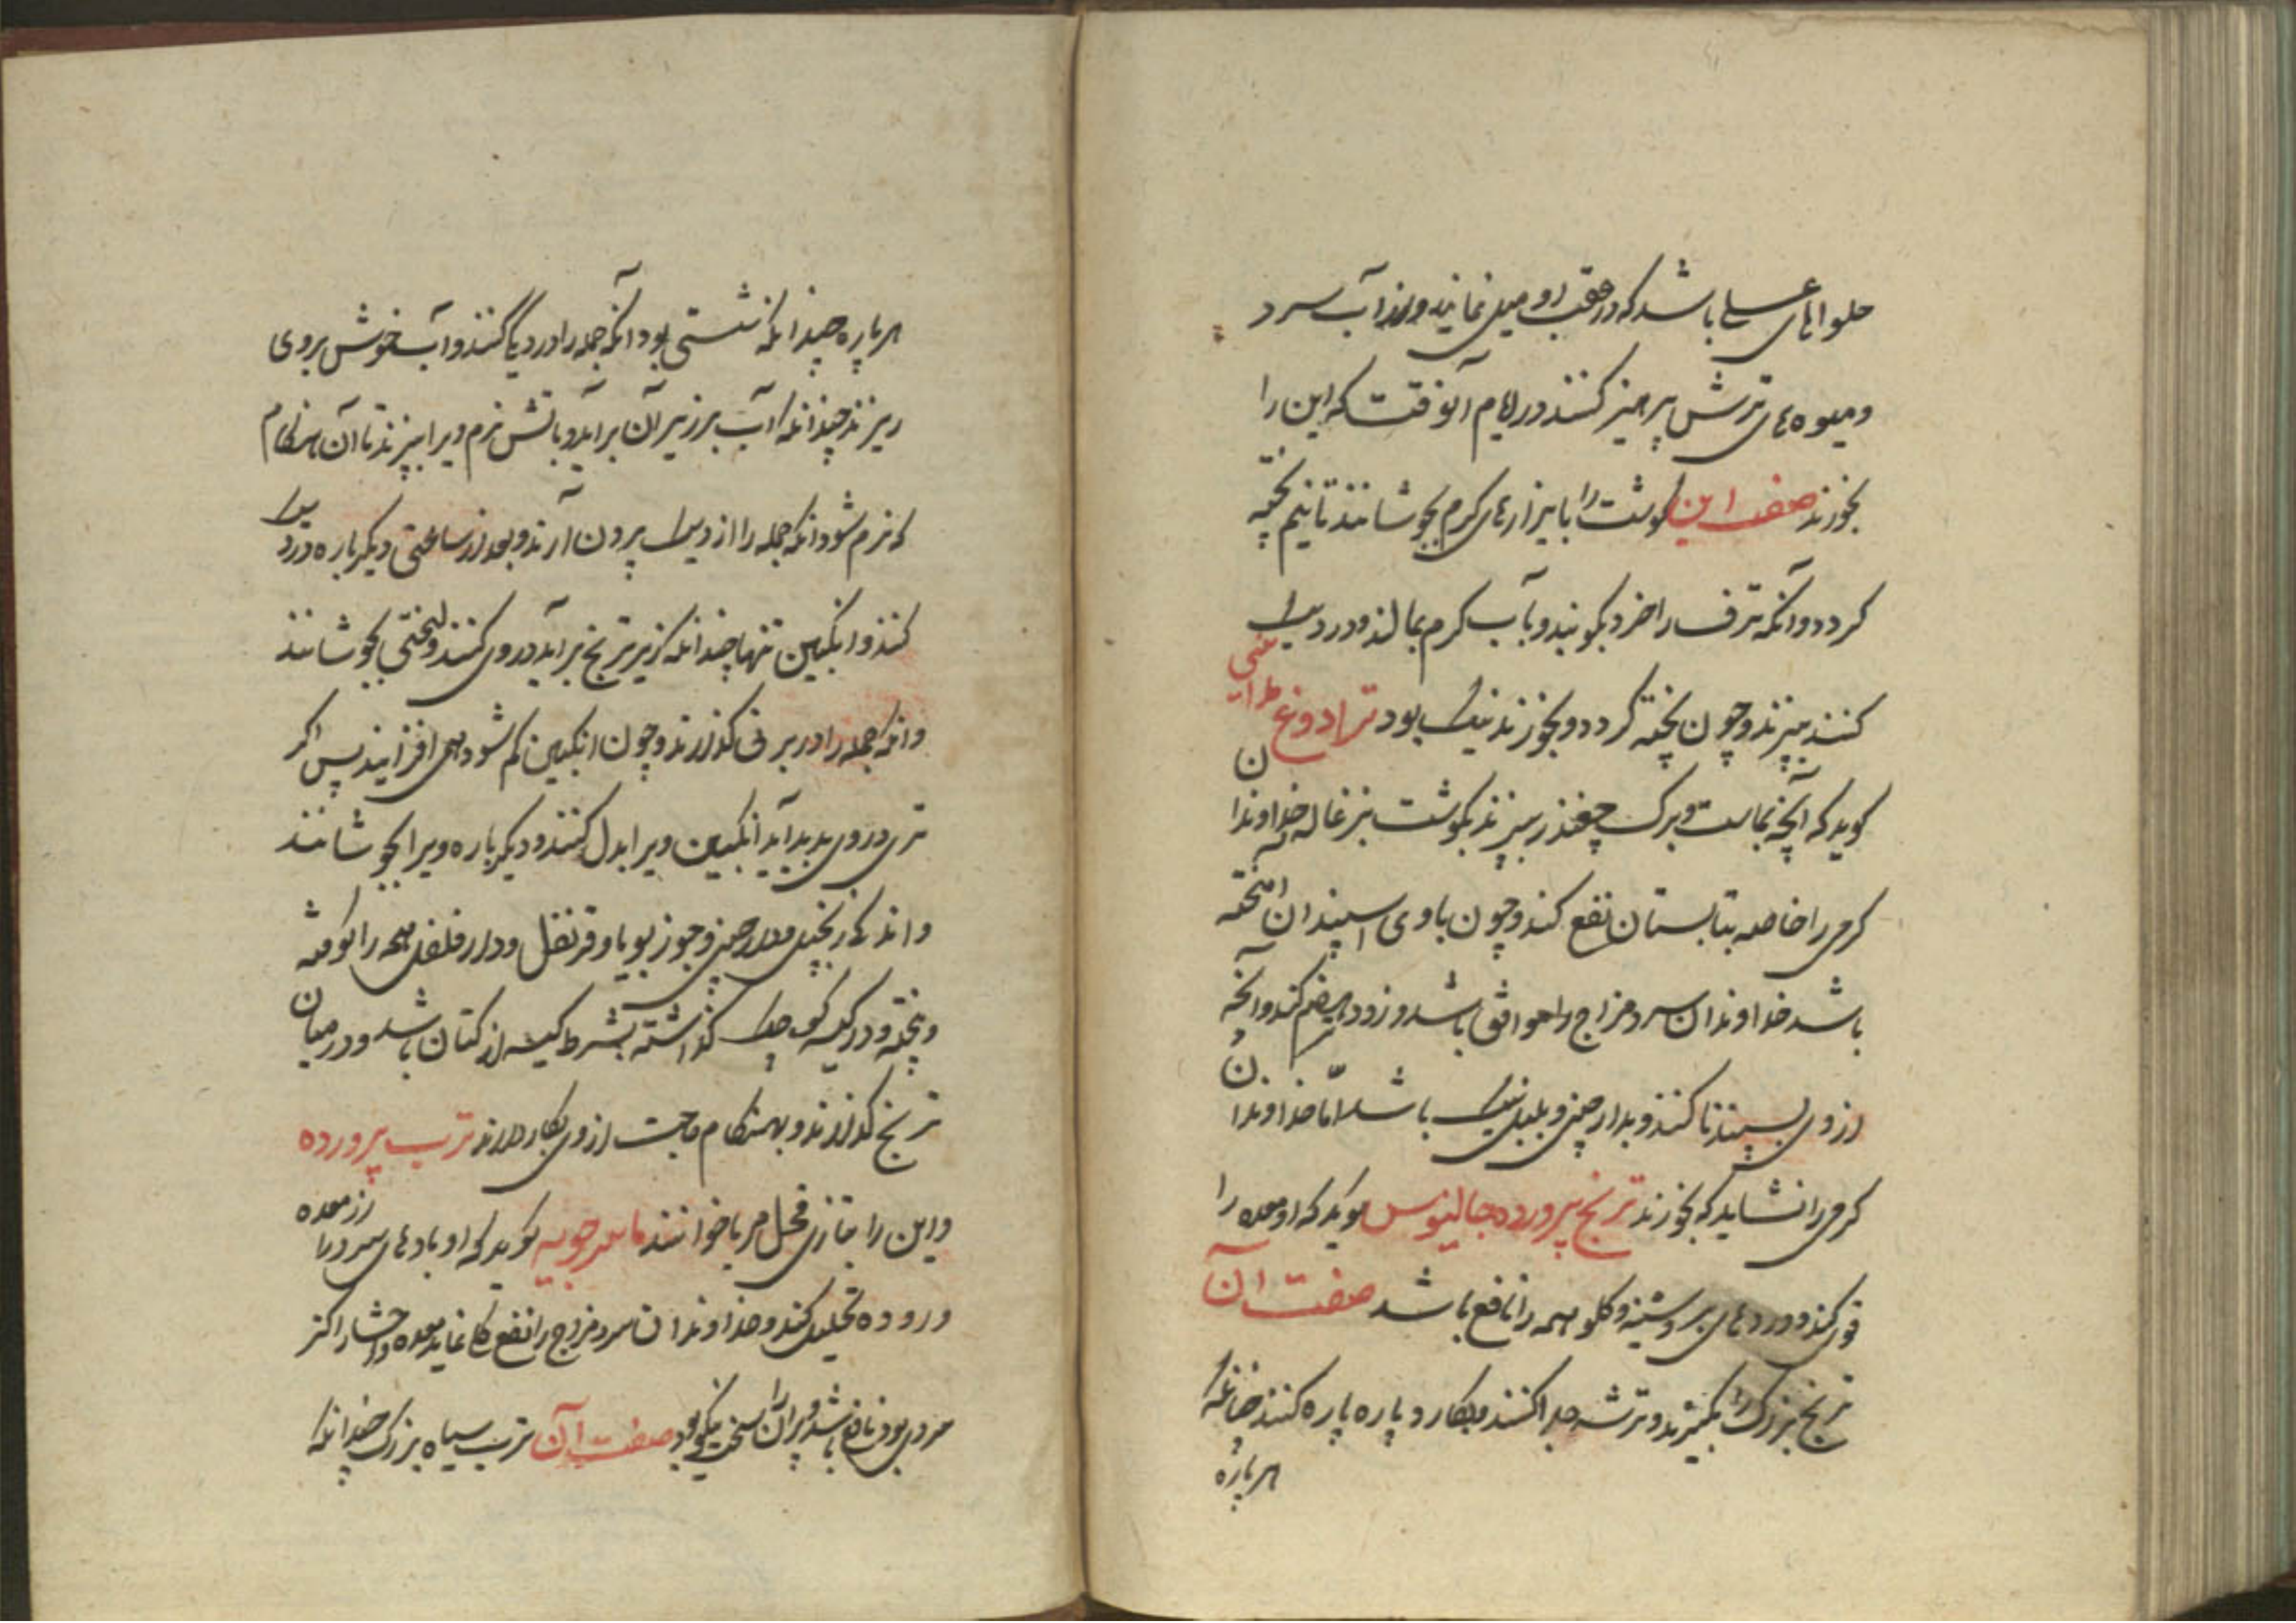 حلواهای عسلی باشد که در عقب او میل نمایند و از آب سرد
و میوه های ترش پرهیز کنند در ایام آنوقت که این را
بخورند صفت این گوشت را با بیزارهای گرم بجوشانند تا نیم پخته
گردد و آنکه ترف را خرد بکوبند و بآب گرم بمالند و در دیک
کنند بپزند و چون پخته گردد و بخورند نیک بود ترادوغ
گوید که آنچه بماست و برک چغندر بپزند بگوشت بزغاله خداوندان
گرمی را خاصه بتابستان نفع کند و چون با وی اسپندان آمیخته
باشد خداوندان سرد مزاج را موافق باشد و زود هضم کند و آنچه
از وی بسپندنا کنند و بدارچینی و پلپل نیک باشد اما خداوندان
گرمی را نشاید که بخورند ترنج پرورده جالینوس گوید که او معده را
قوی کند و دردهای بر و سینه و گلو همه را نافع باشد صفت آن
ترنج بزرک را بگیرند و ترشه جدا کنند بکارد و پاره پاره کنند چنانکه
هر پاره
هر پاره چندانکه شستی بود آنکه جمله را در دیک کنند و آب خوش بروی
ریزند چندانکه آب بر زبر آن برآید و بآتش نرم ویرا بپزند تا آن هنکام
که نرم شود آنکه جمله را از دیک بیرون آرند و بعد از ساعتی دیکر باره در دیک
کنند و انکبین تنها چندانکه زبر ترنج برآید در وی کنند و لختی بجوشانند
و آنکه جمله را در برنی گذارند و چون انکبین کم شود همی افزایند پس اکر
تری در وی بدید آید انکبین ویرا بدل کنند و دیکر باره ویرا بجوشانند
و اندکی زنجپیل و دارچینی و جوز بویا و قرنفل و دارفلفل همه را کوفته
و پخته و در کیسه گذاشته بشرط کیسه از کتان باشد و در میان
ترنج گذارند و بهنکام حاجت از وی بکار دارند ترب پرورده
و این را بتازی فجل مربا خوانند ماسرجویه گوید که او بادهای سرد را از معده
و روده تحلیل کند و خداوندان سرد مزاج را نفع نماید معده و احشا را اکر
سردی بود نافع باشد و پیران را سخت نیکو بود صفت آن ترب سیاه بزرک چندانکه